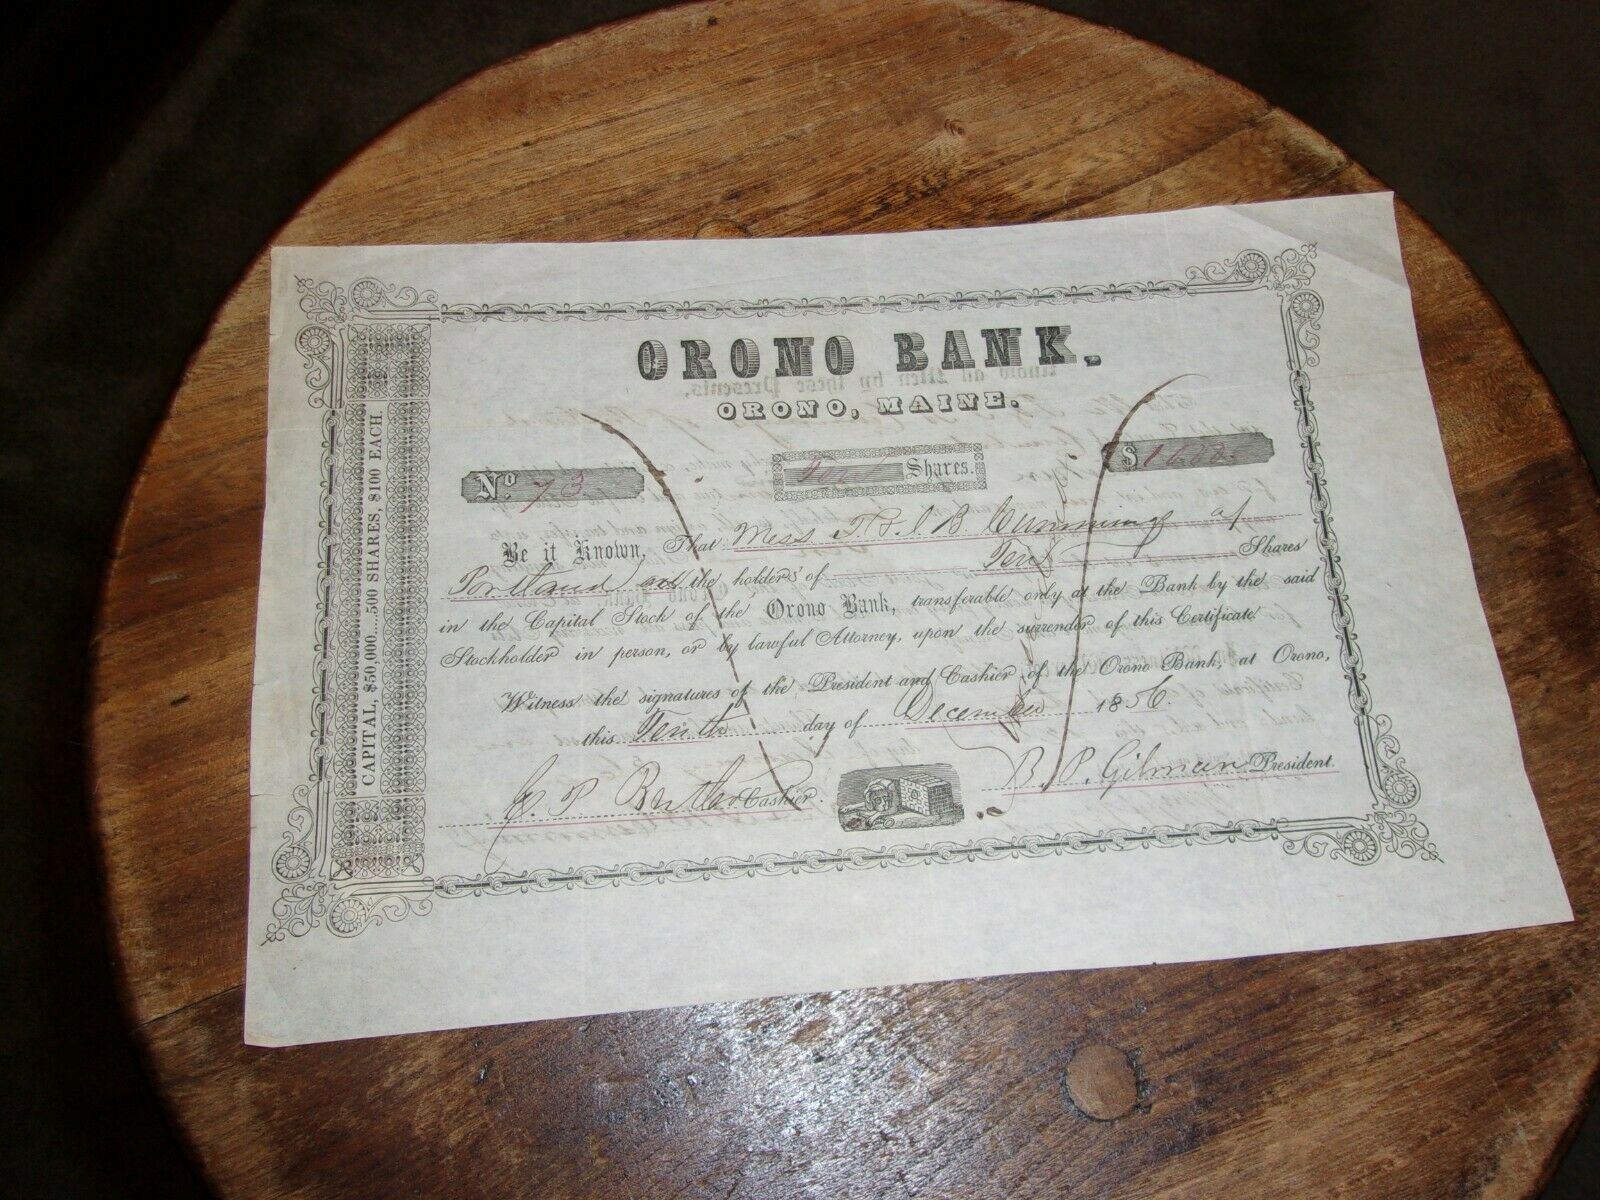 ORONO BANK.
ORONO, MAINE.
No. 73 Ten Shares. $1000.
Be it Known, That Mess T. & J. B. Cummings of
Portland are the holders of Ten Shares
in the Capital Stock of the Orono Bank, transferable only at the Bank by the said
Stockholder in person, or by lawful Attorney, upon the surrender of this Certificate.
Witness the signatures of the President and Cashier of the Orono Bank, at Orono,
this Tenth day of December 1856.
E. P. Butler Cashier. B. P. Gilman President.
CAPITAL, $50,000.....500 SHARES, $100 EACH.